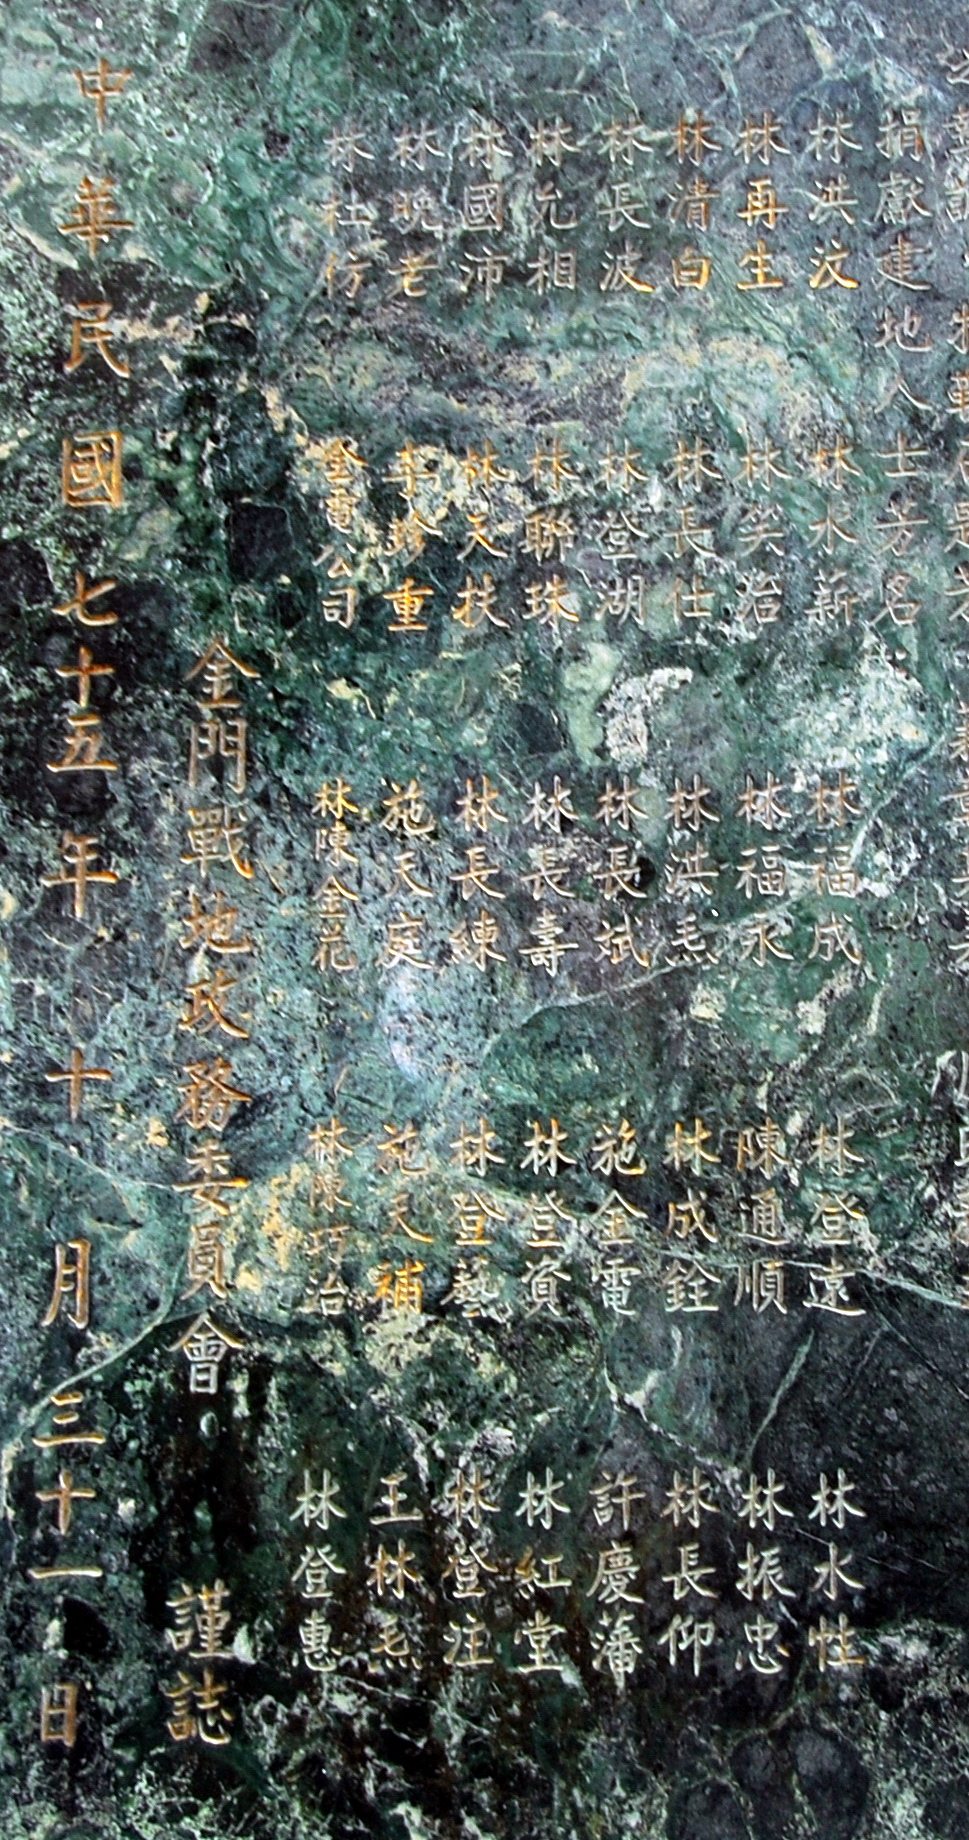 捐獻建地人士芳名
林洪汶 林水薪 林福成 林登遠 林水性
林再生 林笑治 林福永 陳通順 林振忠
林清白 林長仕 林洪炁 林成銓 林長仰
林長波 林登湖 林長斌 施金電 許慶藩
林允相 林聯珠 林長壽 林登資 林紅堂
林國沛 林天扶 林長練 林登藝 林登注
林晚老 李珍重 施天庭 施天補 王林炁
林杜仿 金電公司 林陳金花 林陳巧治 林登惠
金門戰地政務委員會 謹誌
中華民國七十五年十月三十一日